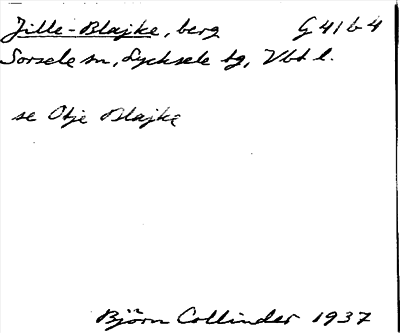 Jille-Blajke, berg G 41 b 4
Sorsele sn, Lycksele tg, Vbt l.
se Otje Blajke
Björn Collinder 1937